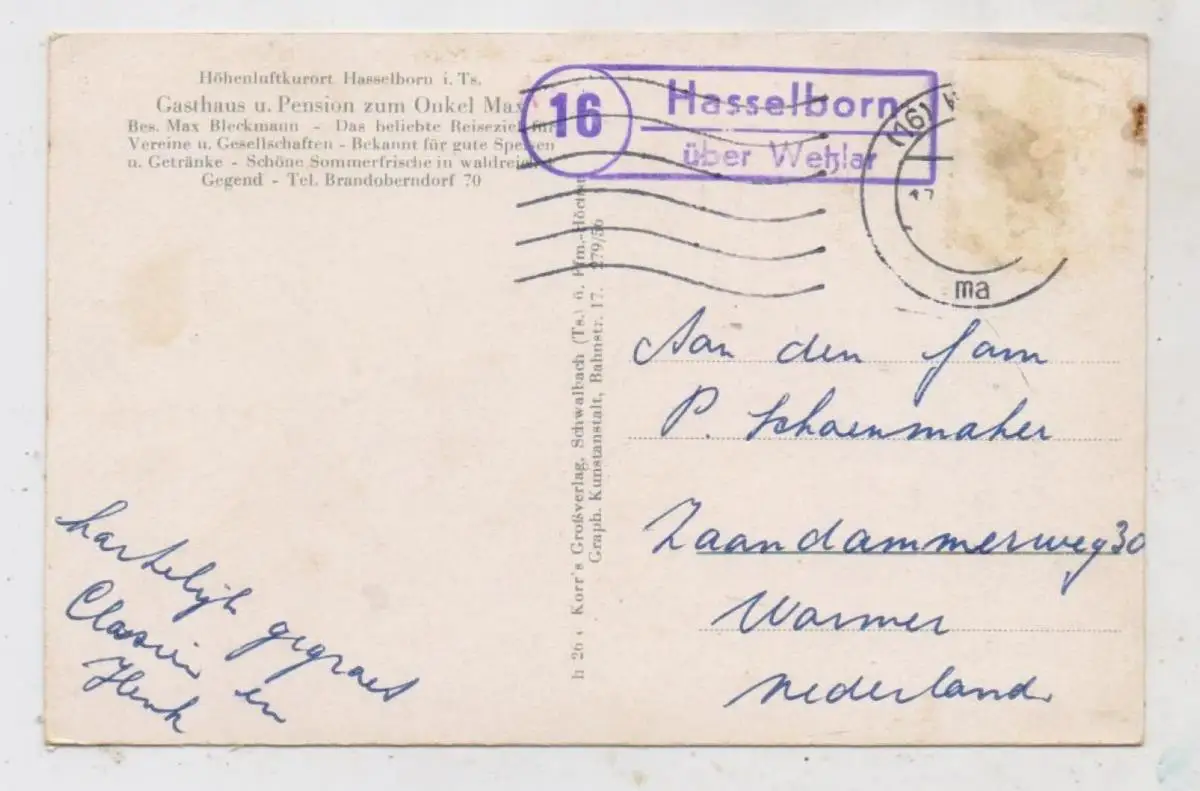 Höhenluftkurort Hasselborn i. Ts.
Gasthaus u. Pension zum Onkel Max
Bes. Max Bleckmann - Das beliebte Reiseziel für
Vereine u. Gesellschaften - Bekannt für gute Speisen
u. Getränke - Schöne Sommerfrische in waldreicher
Gegend - Tel. Brandoberndorf 70
16
Hasselborn
über Wetzlar
(16)
ma
h 26 Korr's Großverlag, Schwalbach (Ts.) ü. Ffm.-Höchst
Graph. Kunstanstalt, Bahnstr. 17. 279/56
Aan den fam
P. Schoenmaker
Zaandammerweg 30
Wormer
Nederland.
hartelijk gegroet
en
Henk